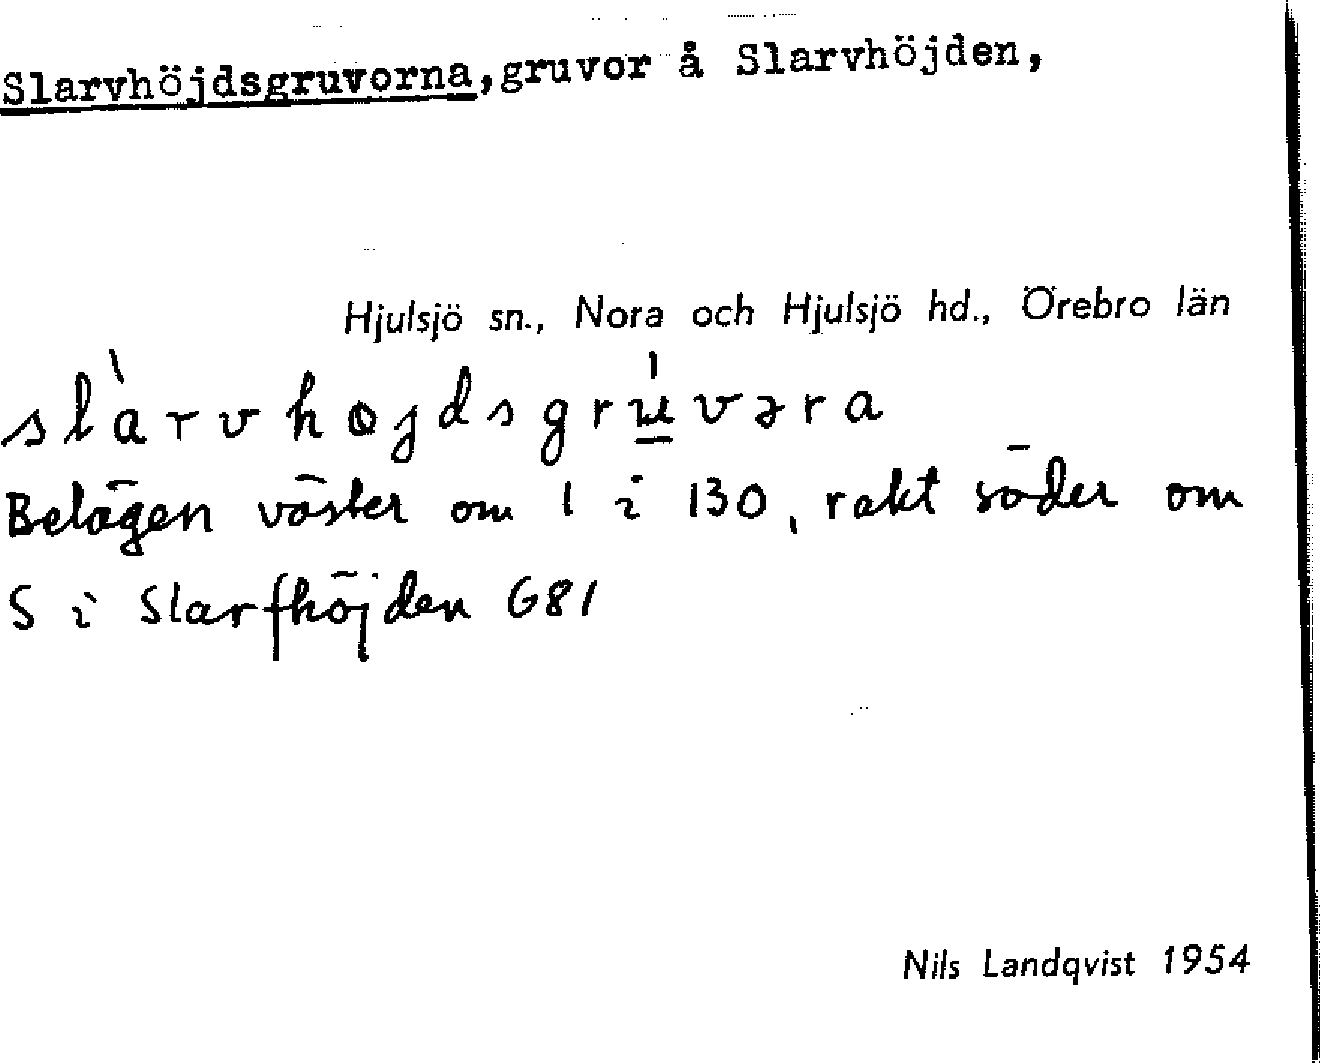 Slarvhöjdsgruvorna, gruvor å Slarvhöjden,
Hjulsjö sn., Nora och Hjulsjö hd., Örebro län
slàrvhøjdsgru̠̍vəra
Belägen väster om 1 i 130, rakt söder om
S i Slarfhöjden G81
Nils Landqvist 1954